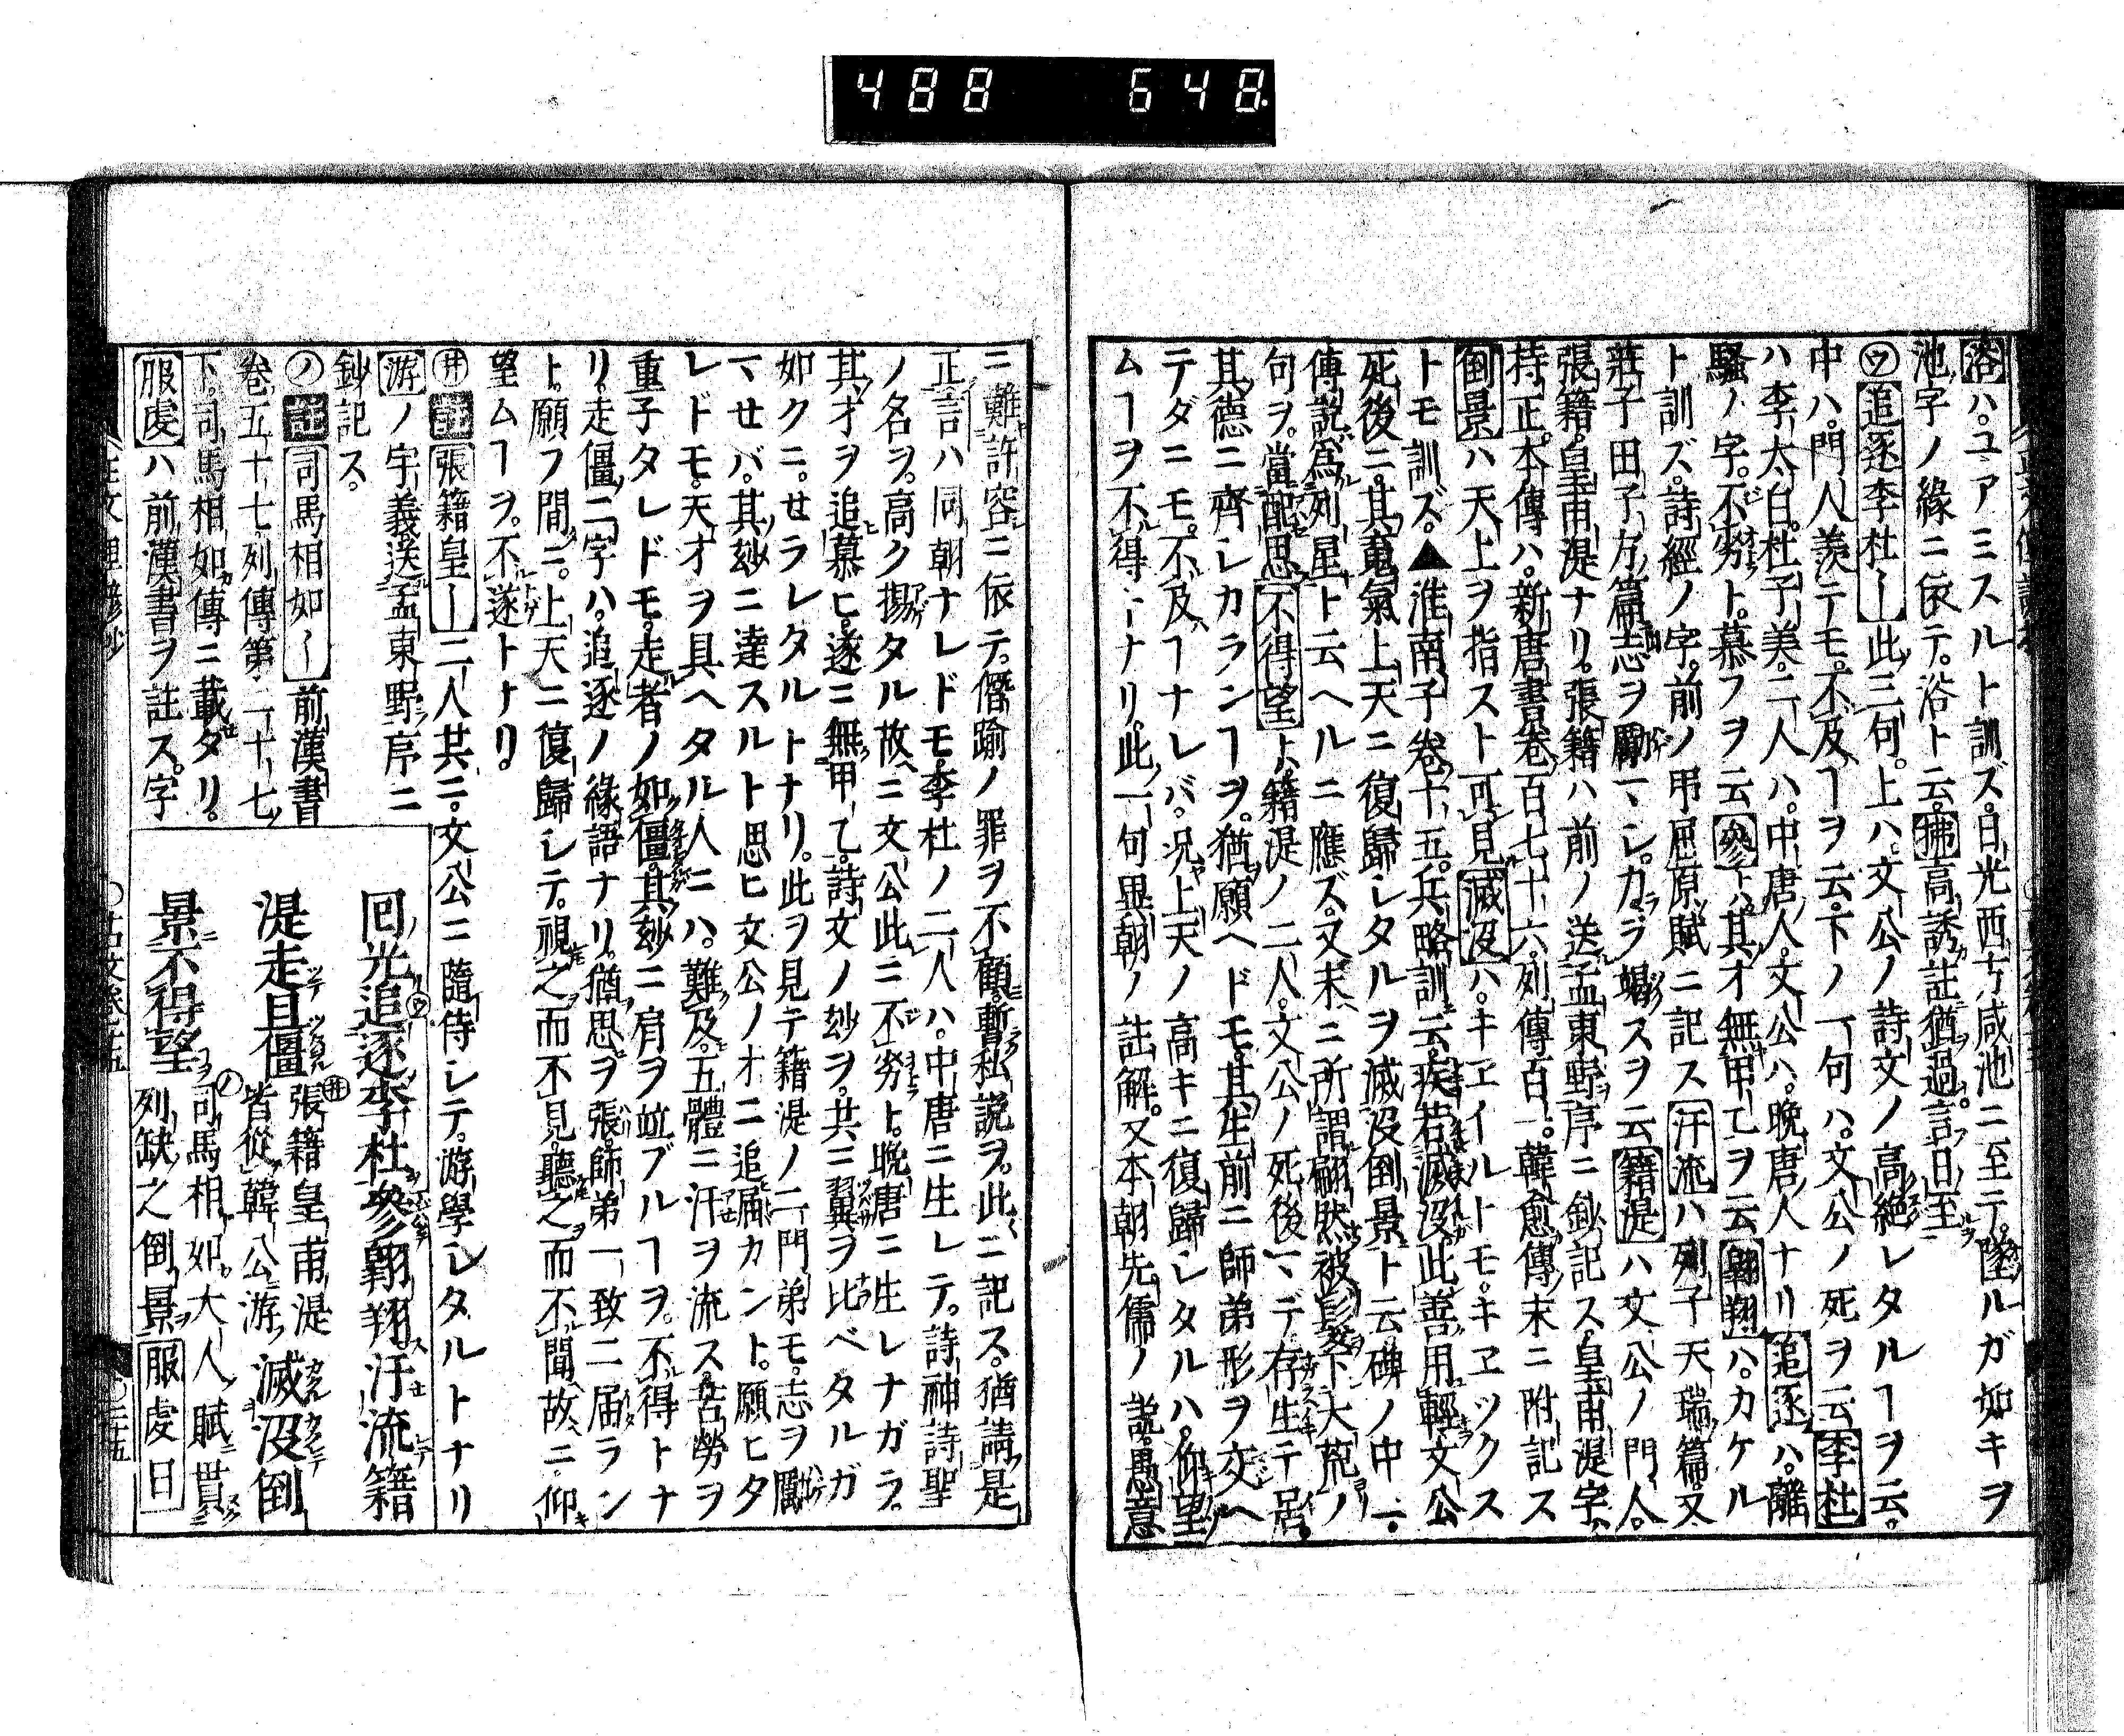 488 648
浴ハ。ユアミスルト訓ズ。日光西方咸池ニ至テ。墜ルガ如キヲ
池字ノ緣ニ依テ。浴ト云。拂高誘註猶過。言日至
ウ追逐李杜〡此三句。上ハ文公ノ詩文ノ高絕レタルヿヲ云。
中ハ。門人羨テモ。不及ヿヲ云。下ノ一句ハ。文公ノ死ヲ云李杜
ハ李太白。杜子美。二人ハ。中唐人。文公ハ。晩唐人ナリ追逐ハ。離
騷ノ字。不勞ト。慕フヲ云參ハ。其才無甲乙ヲ云翺翔ハ。カケル
ト訓ズ。詩經ノ字。前ノ弔屈原賦ニ記ス汗流ハ列子天瑞篇。又
莊子田子方篇志ヲ勵マシ。力ラヲ竭スヲ云籍湜ハ文公ノ門人。
張籍。皇甫湜ナリ。張籍ハ前ノ送孟東野序ニ鈔記ス皇甫湜字
持正。本傳ハ。新唐書卷百七十六。列傳百一。韓愈傳末ニ附記ス
倒景ハ天上ヲ指スト可見滅没ハ。キエイルトモ。キエツクス
トモ訓ズ。▲淮南子卷十五。兵略訓云。疾若滅沒此善用輕文公
死後ニ。其鬼氣上天ニ復歸シタルヲ滅沒倒景ト云碑ノ中ニ。
傳說爲列星ト云ヘルニ應ズ。又末ニ所謂翩然被髮下大荒ノ
句ヲ。當配思不得望ト籍湜ノ二人。文公ノ死後マデ存生テ居。
其德ニ齊レカランヿヲ。猶願ヘドモ。其生前ニ師弟形ヲ交ヘ
テダニモ。不及ヿナレバ。況上天ノ高キニ復歸シタルハ。仰望
ムヿヲ不得ナリ。此一句異朝ノ註解。又本朝先儒ノ說。愚意
ニ難許容ニ依テ。僭踰ノ罪ヲ不顧。暫私說ヲ。此ニ記ス。猶請是
正言ハ同朝ナレドモ。李杜ノ二人ハ。中唐ニ生レテ。詩神詩聖
ノ名ヲ。高ク揚タル故ニ文公此ニ不勞ト。晩唐ニ生レナガラ。
其才ヲ追慕ヒ。遂ニ無甲乙。詩文ノ玅ヲ。共ニ翼ヲ比ベタルガ
如クニ。せラレタルトナリ。此ヲ見テ籍湜ノ二門弟モ。志ヲ勵
マせバ。其玅ニ達スルト思ヒ文公ノ才ニ追届カント。願ヒタ
レドモ。天才ヲ具ヘタル人ニハ。難及。五體ニ汗ヲ流ス。苦勞ヲ
重子タレドモ。走者ノ如僵。其玅ニ肩ヲ竝ブルヿヲ。不得トナ
リ。走僵二字ハ。追逐ノ緣語ナリ。猶思ヲ張。師弟一致ニ届ラン
ト。願フ間ニ。上天ニ復歸シテ。視之而不見。聽之而不聞故ニ仰
望ムヿヲ。不遂トナリ。
井註張籍皇〡二人共ニ。文公ニ隨侍シテ。游學シタルトナリ
游ノ字義送孟東野序ニ
鈔記ス。
ノ註司馬相如〡前漢書
卷五十七。列傳第二十七
下。司馬相如傳ニ載タリ。
服虔ハ前漢書ヲ註ス。字
回光追逐李杜參翺翔。汗流籍
湜走且僵張籍皇甫湜皆從韓公游滅沒倒
景不得望司馬相如。大人賦貫列缺之倒景服虔曰